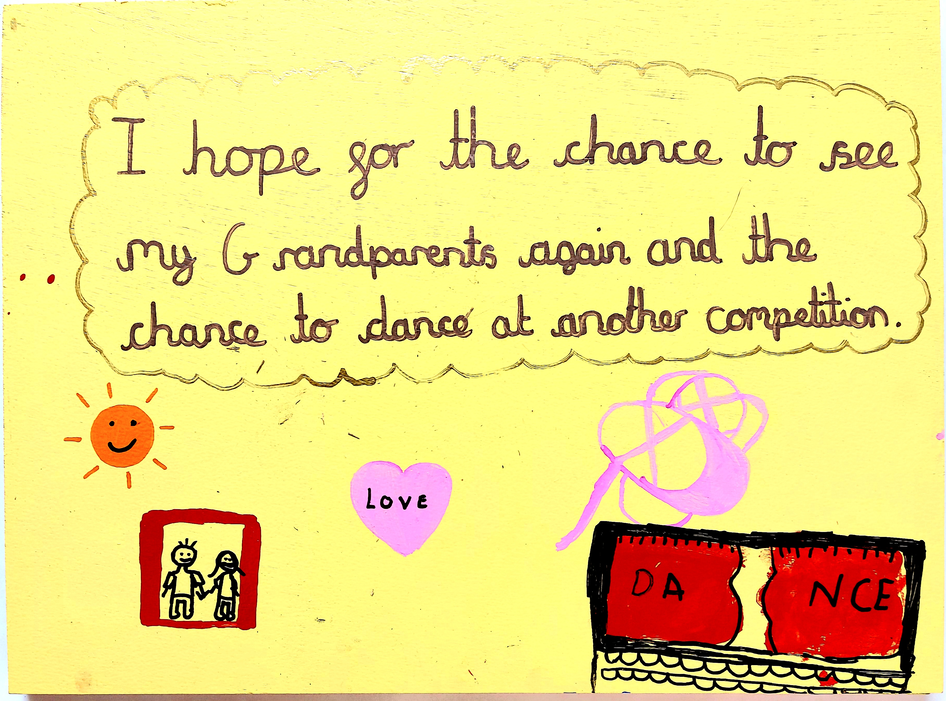 I hope for the chance to see
my Grandparents again and the
chance to dance at another competition.
LOVE
DA NCE